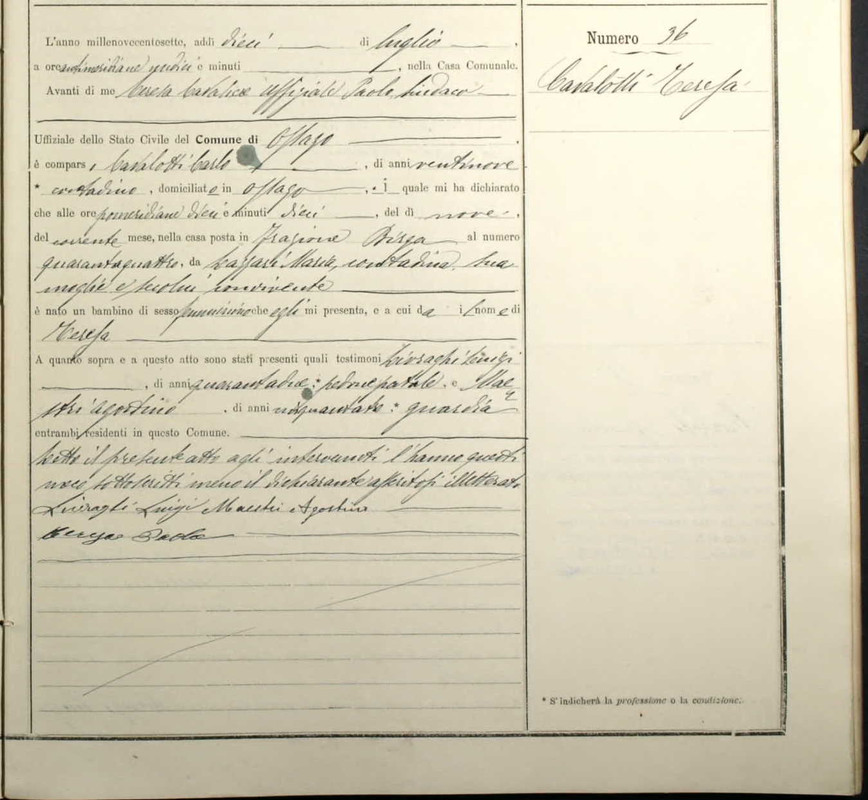 L'anno millenovecentosette, addì dieci di luglio,
a ore antimeridiane undici e minuti , nella Casa Comunale.
Avanti di me Ceresa Cavaliere Uffiziale Paolo Sindaco
Uffiziale dello Stato Civile del Comune di Ossago
è compars Cavalotti Carlo , di anni ventinove
* contadino, domiciliato in Ossago, il quale mi ha dichiarato
che alle ore pomeridiane dieci e minuti dieci, del dì nove
del corrente mese, nella casa posta in Frazione al numero
quarantaquattro, da Maria, contadina, sua
moglie e secolui convivente
è nato un bambino di sesso femminino che egli mi presenta, e a cui da il nome di
Teresa
A quanto sopra e a questo atto sono stati presenti quali testimoni Livraghi Luigi
, di anni e Mae
stri Agostino, di anni guardia
entrambi residenti in questo Comune.
Letto il presente atto agli intervenuti l'hanno questi
meco sottoscritti meno il dichiarante illetterato
Livraghi Luigi Maestri Agostino
Ceresa Paolo
Numero 36
Cavalotti Teresa
* S'indicherà la professione o la condizione.